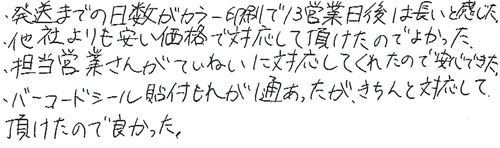 ・発送までの日数がカラー印刷で13営業日後は長いと感じた
・他社よりも安い価格で対応して頂けたのでよかった。
・担当営業さんがていねいに対応してくれたので安心できた。
・バーコードシール貼付もれが1通あったが、きちんと対応して
頂けたので良かった。